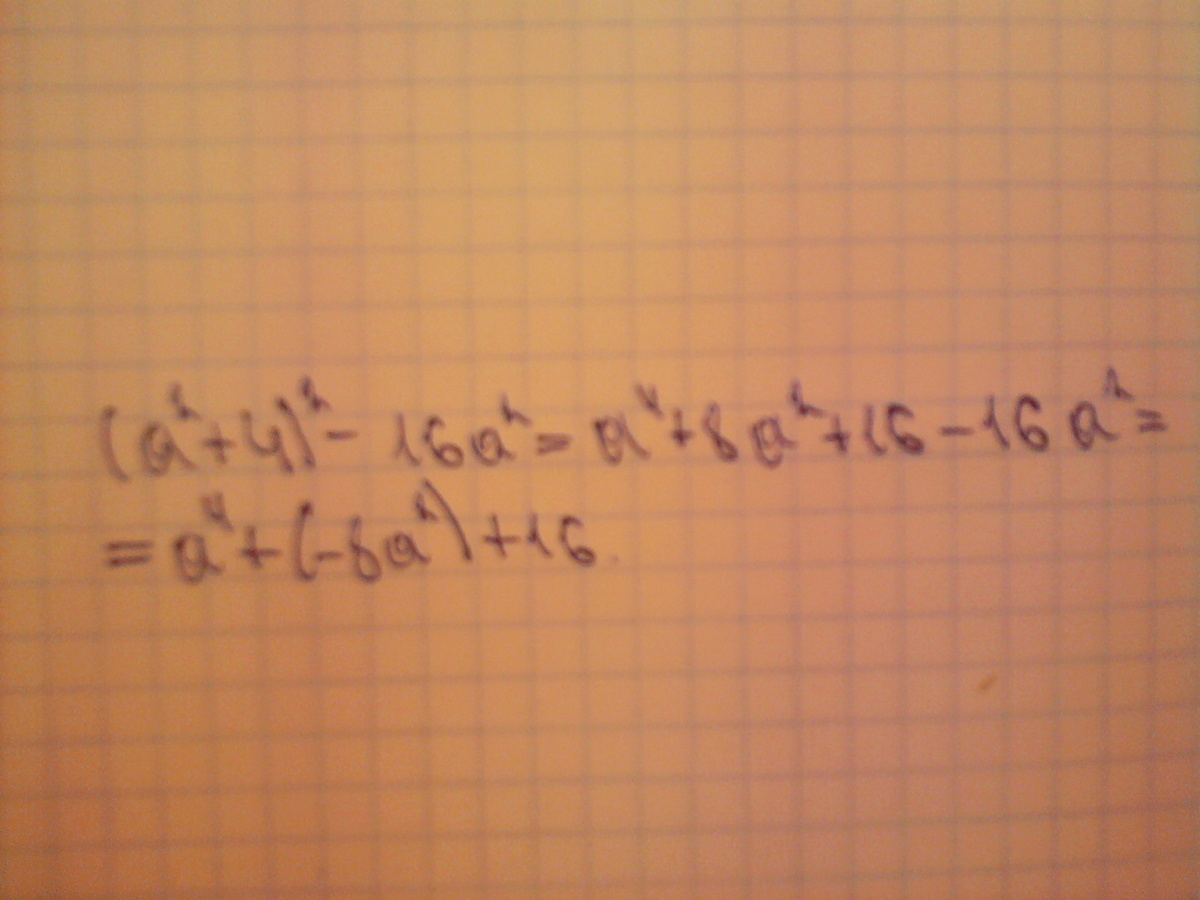 (a²+4)²- 16a²= a⁴+8a²+16-16a²=
=a⁴+(-8a²)+16.